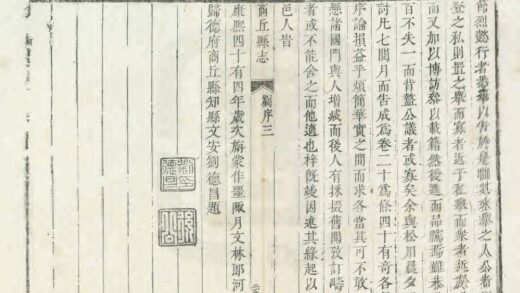 節烈懿行者悉舉以告於是聯其衆舉之人公
登之私則置之舉而寡者返于私舉而衆者近於
而又加以博訪參以載籍然後進而品騭焉雖未
百不失一而背盩公議者或寡矣余與松川晨夕
討凡七閱月而告成爲卷二十爲條四十有奇各
序論損益乎煩簡華實之間而求各當其可不敢
懸諸國門與人增減而後人有採掇舊聞攷訂疇
者或不能舍之而他適也梓既竣因述其緣起以
邑人皆
商丘縣志 劉序三
康熙四十有四年歲次旃蒙作噩陬月文林郎河
歸德府商丘縣知縣文安劉德昌題